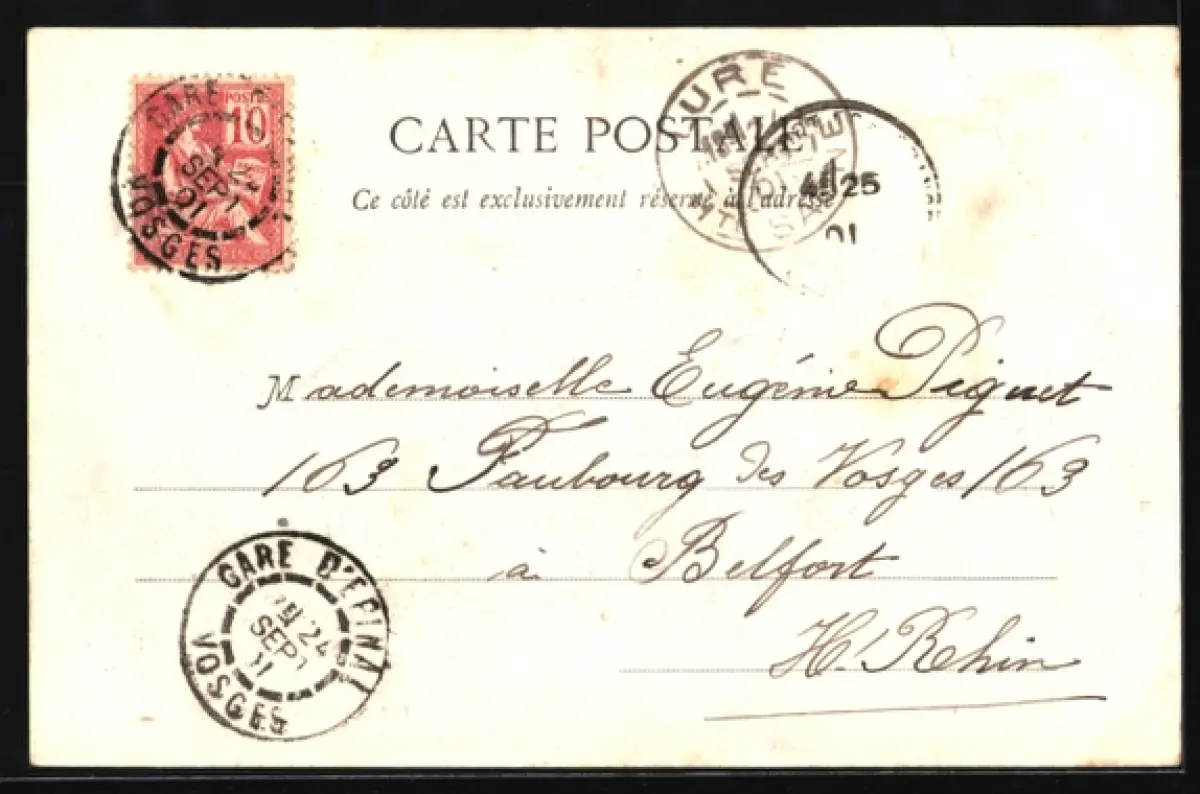 POSTE
10
GARE
24
SEPT
01
VOSGES
LURE
CARTE POSTALE
Ce côté est exclusivement réservé à l'adresse
25
01
HTE SAÔNE
Mademoiselle Eugénie Piguet
163 Faubourg des Vosges 163
à Belfort
Ht Rhin
GARE D'EPINAL
24
SEPT
01
VOSGES